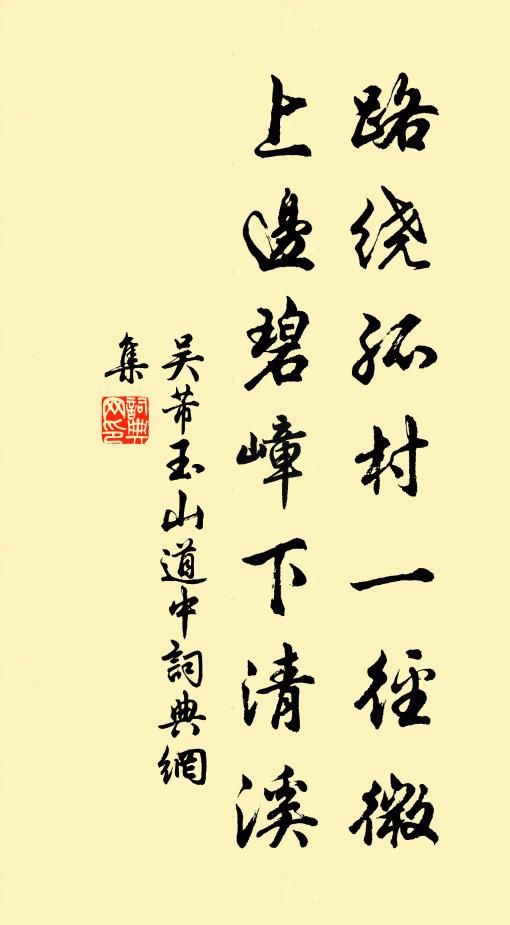 路绕孤村一径微
上邊碧嶂下清溪
吴芾玉山道中詞典網
集
詞典網印